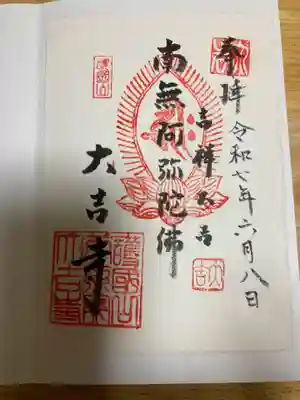 奉拝 令和七年六月八日
吉祥大吉
南無阿弥陀佛
大吉寺